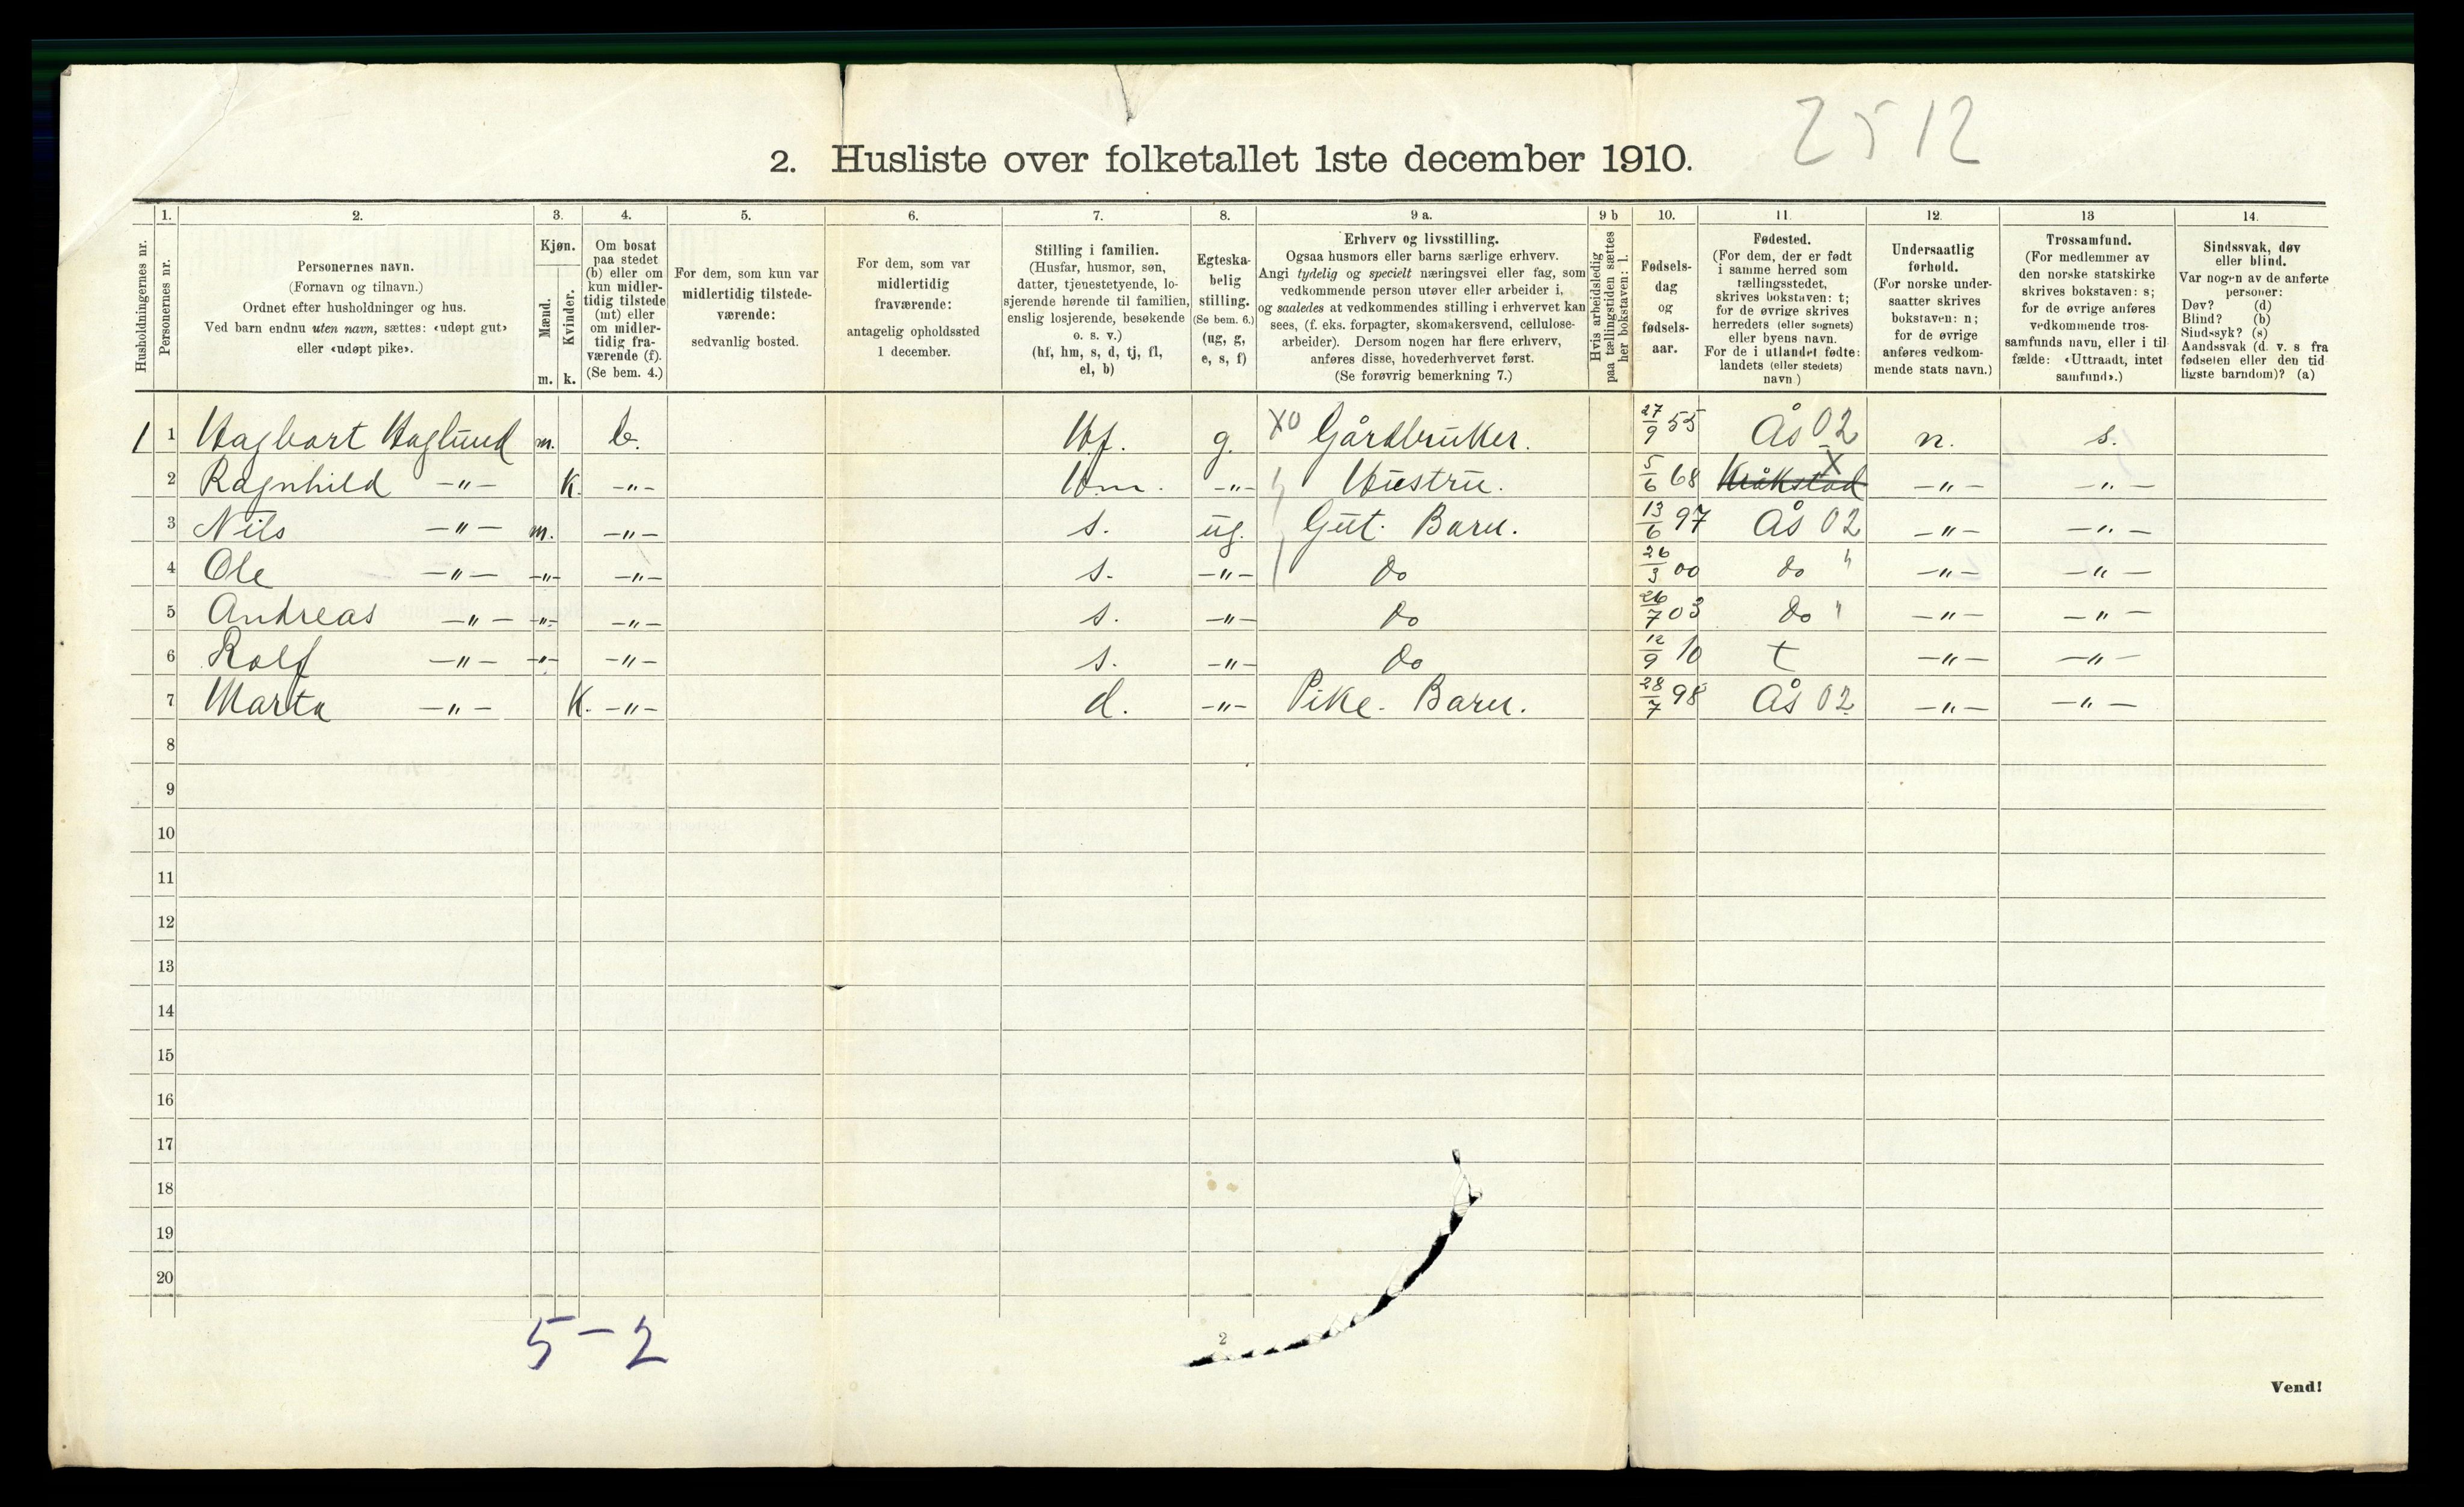 2512
2. Husliste over folketallet 1ste december 1910.
Husholdningernes nr.
1.
Personernes nr.
2.
Personernes navn.
(Fornavn og tilnavn.)
Ordnet efter husholdninger og hus.
Ved barn endnu uten navn, sættes: «udøpt gut»
eller «udøpt pike».
3.
Kjøn.
Mænd.
Kvinder.
m. k.
4.
Om bosat
paa stedet
(b) eller om
kun midler-
tidig tilstede
(mt) eller
om midler-
tidig fra-
værende (f).
(Se bem. 4.)
5.
For dem, som kun var
midlertidig tilstede-
værende:
sedvanlig bosted.
6.
For dem, som var
midlertidig
fraværende:
antagelig opholdssted
1 december.
7.
Stilling i familien.
(Husfar, husmor, søn,
datter, tjenestetyende, lo-
sjerende hørende til familien,
enslig losjerende, besøkende
o. s. v.)
(hf, hm, s, d, tj, fl,
el, b)
8.
Egteska-
belig
stilling.
(Se bem. 6.)
(ug, g,
e, s, f)
9 a.
Erhverv og livsstilling.
Ogsaa husmors eller barns særlige erhverv.
Angi tydelig og specielt næringsvei eller fag, som
vedkommende person utøver eller arbeider i,
og saaledes at vedkommendes stilling i erhvervet kan
sees, (f. eks. forpagter, skomakersvend, cellulose-
arbeider). Dersom nogen har flere erhverv,
anføres disse, hovederhvervet først.
(Se forøvrig bemerkning 7.)
9 b
Hvis arbeidsledig
paa tællingstiden sættes
her bokstaven: l.
10.
Fødsels-
dag
og
fødsels-
aar.
11.
Fødested.
(For dem, der er født
i samme herred som
tællingsstedet,
skrives bokstaven: t;
for de øvrige skrives
herredets (eller sognets)
eller byens navn.
For de i utlandet fødte:
landets (eller stedets)
navn)
12.
Undersaatlig
forhold.
(For norske under-
saatter skrives
bokstaven: n;
for de øvrige
anføres vedkom-
mende stats navn.)
13
Trossamfund.
(For medlemmer av
den norske statskirke
skrives bokstaven: s;
for de øvrige anføres
vedkommende tros-
samfunds navn, eller i til
fælde: «Uttraadt, intet
samfund».)
14.
Sindssvak, døv
eller blind.
Var nogen av de anførte
personer:
Døv? (d)
Blind? (b)
Sindssyk? (s)
Aandssvak (d. v. s fra
fødselen eller den tid
ligste barndom)? (a)
1 1 Hagbart Haglund m. b. Hf. g. X0 Gårdbruker. 27/9 55 Ås 02 n. s.
2 Ragnhild -"- K. -"- Hm. -"- Hustru. 5/6 68 Kråkstad X -"- -"-
3 Nils -"- m. -"- s. ug. Gut. Barn. 13/6 97 Ås 02 -"- -"-
4 Ole -"- -"- -"- s. -"- do 26/3 00 do " -"- -"-
5 Andreas -"- -"- -"- s. -"- do 26/7 03 do " -"- -"-
6 Rolf -"- -"- -"- s. -"- do 12/9 10 t -"- -"-
7 Marta -"- K. -"- d. -"- Pike. Barn. 28/7 98 Ås 02 -"- -"-
8
9
10
11
12
13
14
15
16
17
18
19
20
5-2
2
Vend!